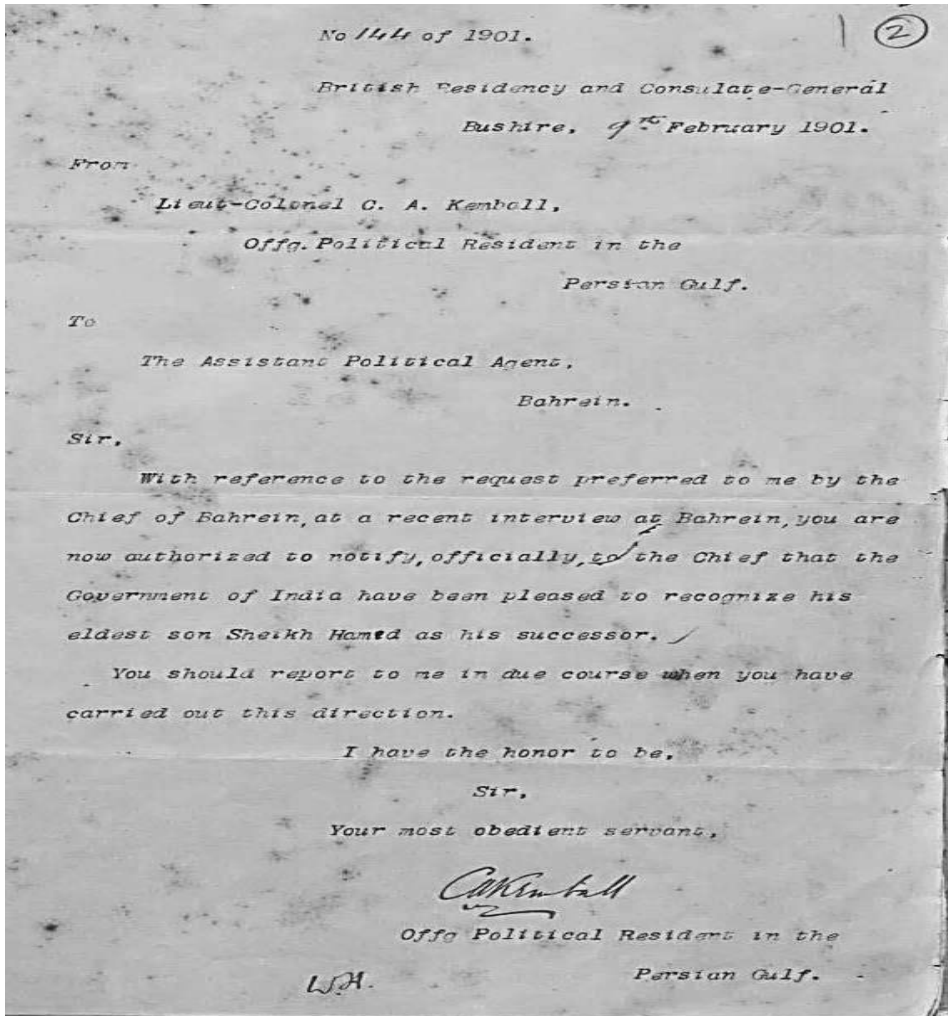 No 144 of 1901.
1 2
British Residency and Consulate-General
Bushire, 9th February 1901.
From
Lieut-Colonel C. A. Kemball,
Offg. Political Resident in the
Persian Gulf.
To
The Assistant Political Agent,
Bahrein.
Sir,
With reference to the request preferred to me by the
Chief of Bahrein, at a recent interview at Bahrein, you are
now authorized to notify, officially, to the Chief that the
Government of India have been pleased to recognize his
eldest son Sheikh Hamed as his successor.
You should report to me in due course when you have
carried out this direction.
I have the honor to be,
Sir,
Your most obedient servant,
CAKemball
Offg Political Resident in the
Persian Gulf.
W.H.